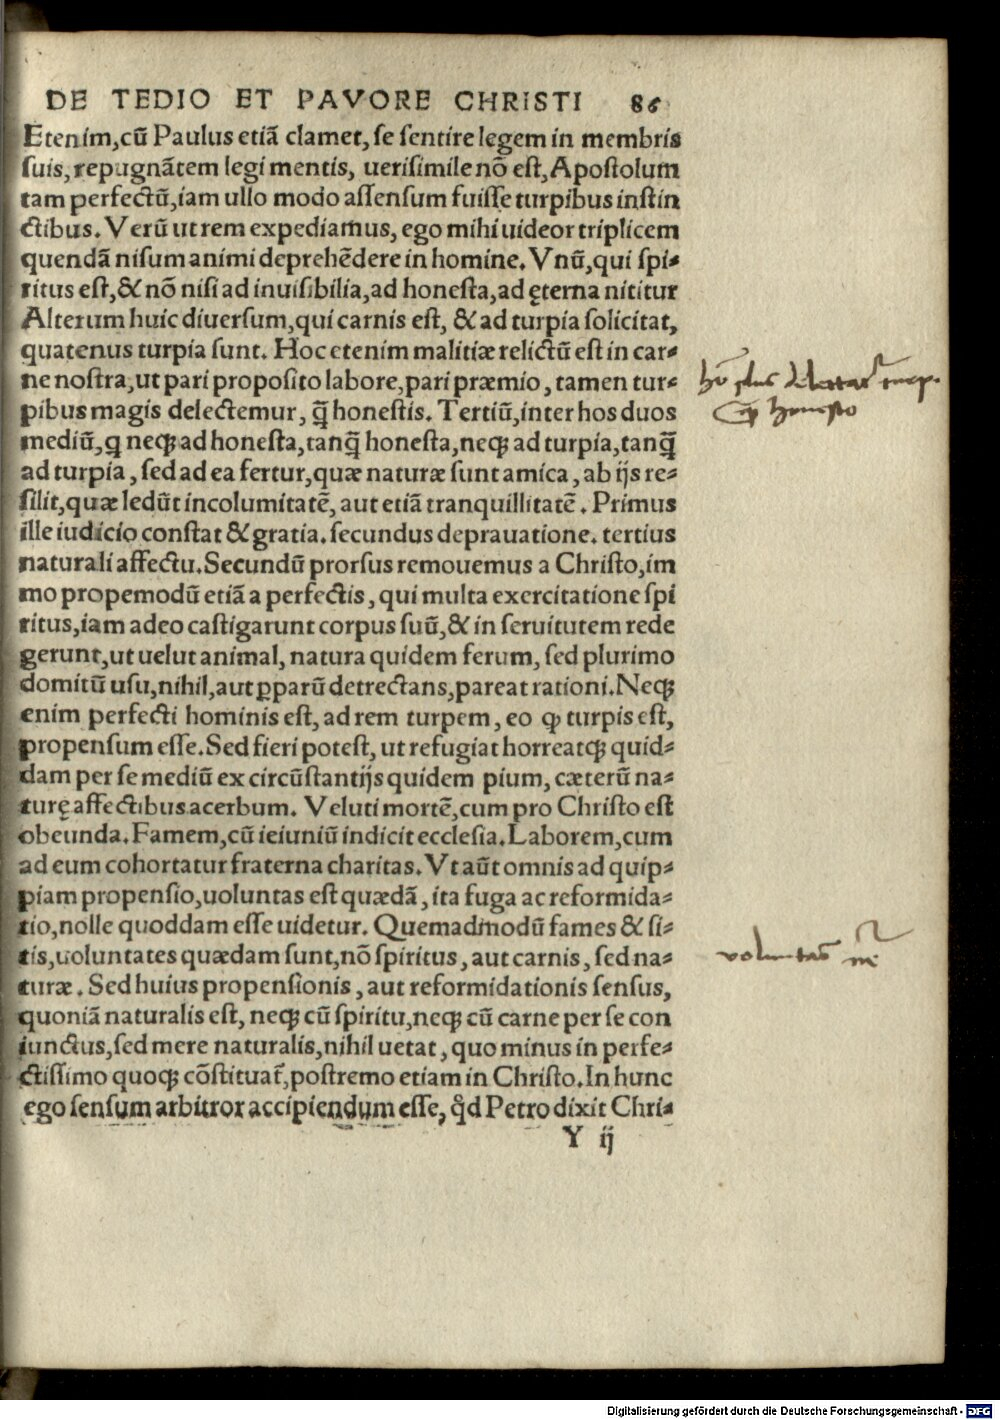 DE TEDIO ET PAVORE CHRISTI 86
Etenim, cũ Paulus etiã clamet, se sentire legem in membris
suis, repugnãtem legi mentis, uerisimile nõ est, Apostolum
tam perfectũ, iam ullo modo assensum fuisse turpibus instin
ctibus. Verũ ut rem expediamus, ego mihi uideor triplicem
quendã nisum animi deprehẽdere in homine. Vnũ, qui spi-
ritus est, & nõ nisi ad inuisibilia, ad honesta, ad ęterna nititur
Alterum huic diuersum, qui carnis est, & ad turpia solicitat,
quatenus turpia sunt. Hoc etenim malitiæ relictũ est in car-
ne nostra, ut pari proposito labore, pari præmio, tamen tur-
pibus magis delectemur, q̃ honestis. Tertiũ, inter hos duos
mediũ, q neqꝫ ad honesta, tanq̃ honesta, neqꝫ ad turpia, tanq̃
ad turpia, sed ad ea fertur, quæ naturæ sunt amica, ab ijs re-
silit, quæ ledũt incolumitatẽ, aut etiã tranquillitatẽ. Primus
ille iudicio constat & gratia. secundus deprauatione. tertius
naturali affectu. Secundũ prorsus remouemus a Christo, im
mo propemodũ etiã a perfectis, qui multa exercitatione spi
ritus, iam adeo castigarunt corpus suũ, & in seruitutem rede
gerunt, ut uelut animal, natura quidem ferum, sed plurimo
domitũ usu, nihil, aut ꝑparũ detrectans, pareat rationi. Neqꝫ
enim perfecti hominis est, ad rem turpem, eo ꝙ turpis est,
propensum esse. Sed fieri potest, ut refugiat horreatqꝫ quid-
dam per se mediũ ex circũstantijs quidem pium, cæterũ na-
turę affectibus acerbum. Veluti mortẽ, cum pro Christo est
obeunda. Famem, cũ ieiuniũ indicit ecclesia. Laborem, cum
ad eum cohortatur fraterna charitas. Vt aũt omnis ad quip-
piam propensio, uoluntas est quædã, ita fuga ac reformida-
tio, nolle quoddam esse uidetur. Quemadmodũ fames & si-
tis, uoluntates quædam sunt, nõ spiritus, aut carnis, sed na-
turæ. Sed huius propensionis, aut reformidationis sensus,
quoniã naturalis est, neqꝫ cũ spiritu, neqꝫ cũ carne per se con
iunctus, sed mere naturalis, nihil uetat, quo minus in perfe-
ctissimo quoqꝫ cõstituat᷑, postremo etiam in Christo. In hunc
ego sensum arbitror accipiendum esse, qd̉ Petro dixit Chri-
Y ij
plus delectat
honesto
voluntas
Digitalisierung gefördert durch die Deutsche Forschungsgemeinschaft - DFG